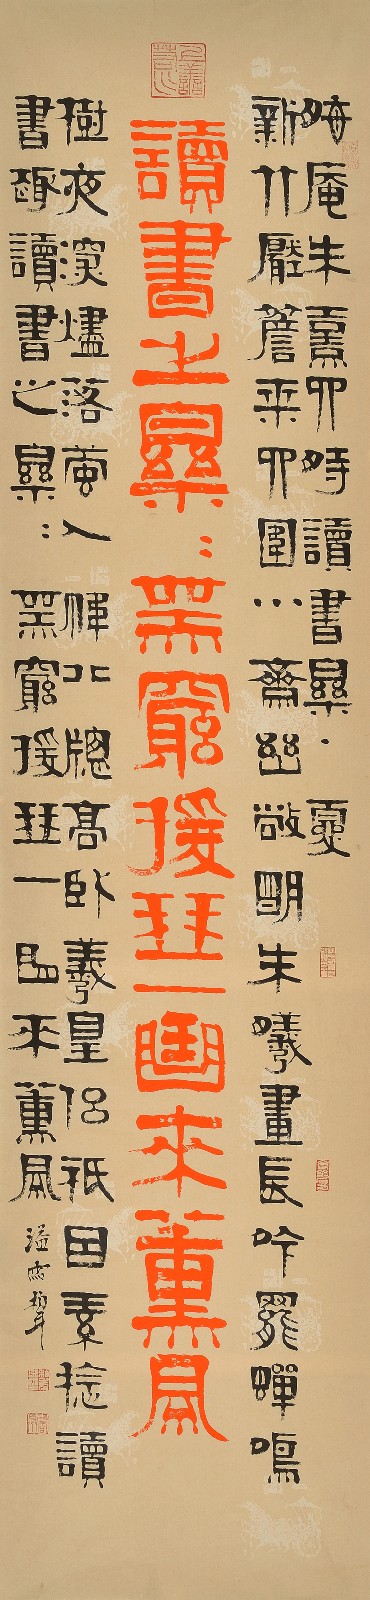 讀書之樂：無窮援琴一曲來薰風
晦庵朱熹四時讀書樂·夏
新竹壓簷桑四圍小齋幽敞明朱曦晝長吟罷蟬鳴
樹夜深燼落螢入幃北牕高臥羲皇侶祇因素稔讀
書趣讀書之樂：無窮援琴一曲來薰風